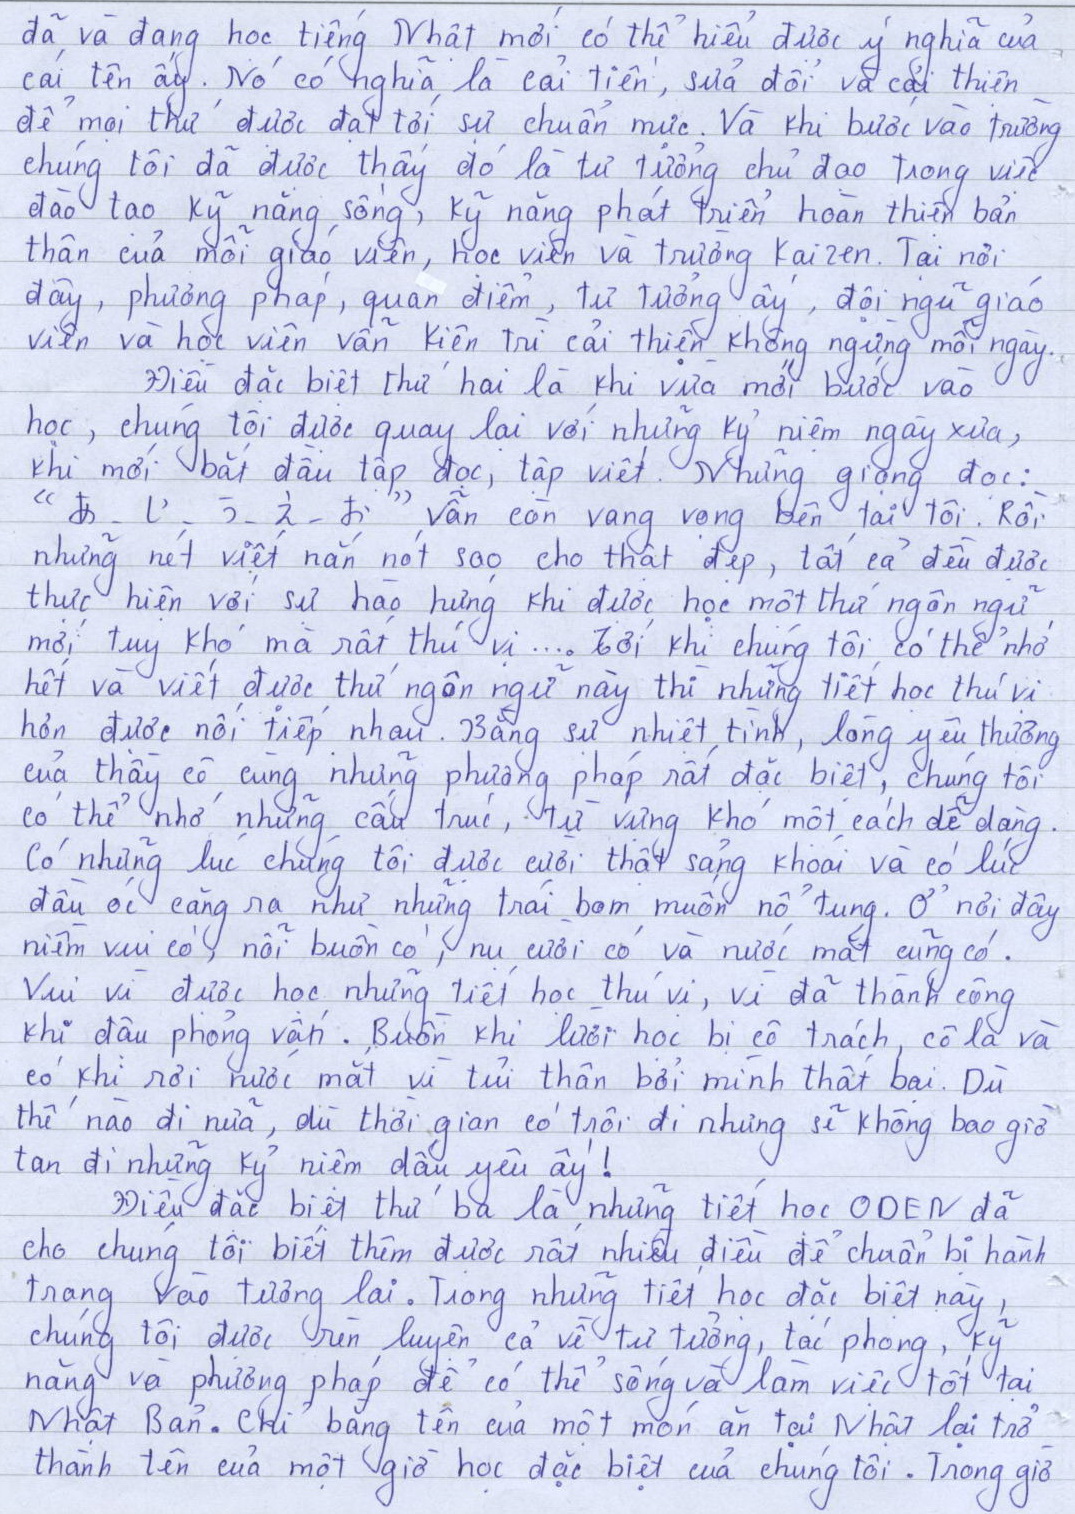 đã và đang học tiếng Nhật mới có thể hiểu được ý nghĩa của
cái tên ấy. Nó có nghĩa là cải tiến, sửa đổi và cải thiện
để mọi thứ được đạt tới sự chuẩn mực. Và khi bước vào trường
chúng tôi đã được thấy đó là tư tưởng chủ đạo trong việc
đào tạo kỹ năng sống, kỹ năng phát triển hoàn thiện bản
thân của mỗi giáo viên, học viên và trường Kaizen. Tại nơi
đây, phương pháp, quan điểm, tư tưởng ấy, đội ngũ giáo
viên và học viên vẫn kiên trì cải thiện không ngừng mỗi ngày.
Điều đặc biệt thứ hai là khi vừa mới bước vào
học, chúng tôi được quay lại với những kỷ niệm ngày xưa,
khi mới bắt đầu tập đọc, tập viết. Những giọng đọc:
“あ - い - う - え - お” vẫn còn vang vọng bên tai tôi. Rồi
những nét viết nắn nót sao cho thật đẹp, tất cả đều được
thực hiện với sự hào hứng khi được học một thứ ngôn ngữ
mới tuy khó mà rất thú vị .... Tới khi chúng tôi có thể nhớ
hết và viết được thứ ngôn ngữ này thì những tiết học thú vị
hơn được nối tiếp nhau. Bằng sự nhiệt tình, lòng yêu thương
của thầy cô cùng những phương pháp rất đặc biệt, chúng tôi
có thể nhớ những cấu trúc, từ vựng khó một cách dễ dàng.
Có những lúc chúng tôi được cười thật sảng khoái và có lúc
đầu óc căng ra như những trái bom muốn nổ tung. Ở nơi đây
niềm vui có, nỗi buồn có, nụ cười có và nước mắt cũng có.
Vui vì được học những tiết học thú vị, vì đã thành công
khi đậu phỏng vấn. Buồn khi lười học bị cô trách, cô la và
có khi rơi nước mắt vì tủi thân bởi mình thất bại. Dù
thế nào đi nữa, dù thời gian có trôi đi nhưng sẽ không bao giờ
tan đi những kỷ niệm dấu yêu ấy!
Điều đặc biệt thứ ba là những tiết học ODEN đã
cho chúng tôi biết thêm được rất nhiều điều để chuẩn bị hành
trang vào tương lai. Trong những tiết học đặc biệt này,
chúng tôi được rèn luyện cả về tư tưởng, tác phong, kỹ
năng và phương pháp để có thể sống và làm việc tốt tại
Nhật Bản. Chỉ bằng tên của một món ăn tại Nhật lại trở
thành tên của một giờ học đặc biệt của chúng tôi. Trong giờ